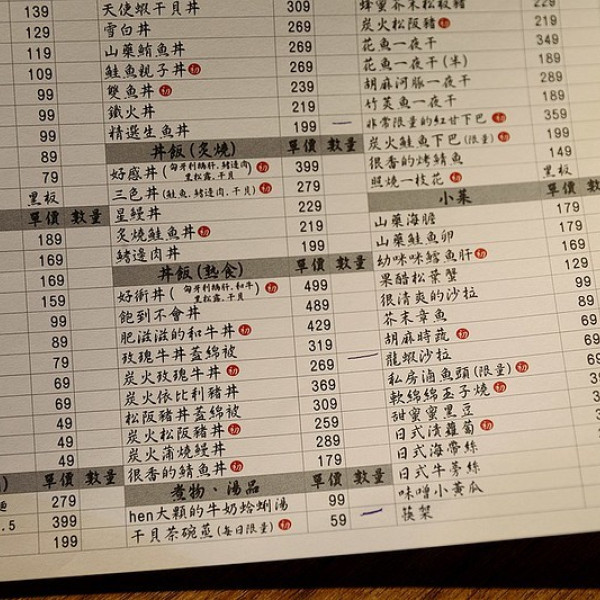 139
129
119
109
99
99
99
89
79
黑板
單價 數量
189
169
169
159
99
89
79
69
69
49
49
49
單價 數量
279
.5 399
199
天使蝦干貝丼 309
雪白丼 269
山藥鮪魚丼 269
鮭魚親子丼 初 269
雙魚丼 初 239
鐵火丼 219
精選生魚丼 199
丼飯(炙燒) 單價 數量
好感丼(匈牙利鵝肝,鰭邊肉,黑松露,干貝) 初 399
三色丼(鮭魚,鰭邊肉,干貝) 初 279
星鰻丼 229
炙燒鮭魚丼 初 219
鰭邊肉丼 199
丼飯(熟食) 單價 數量
好術丼(匈牙利鵝肝,和牛,黑松露,干貝) 初 499
飽到不會丼 489
肥滋滋的和牛丼 初 429
玫瑰牛丼蓋綿被 319
炭火玫瑰牛丼 初 269
炭火依比利豬丼 369
松阪豬丼蓋綿被 309
炭火松阪豬丼 初 259
炭火蒲燒鰻丼 289
很香的鯖魚丼 初 179
煮物、湯品 單價 數量
hen大顆的牛奶蛤蜊湯 99
干貝茶碗蒸(每日限量) 初 59
蜂蜜芥末松阪豬 229
炭火松阪豬 初 219
花魚一夜干 349
花魚一夜干(半) 189
胡麻河豚一夜干 289
竹筴魚一夜干 189
非常限量的紅甘下巴 初 359
炭火鮭魚下巴(限量) 初 199
很香的烤鯖魚 149
照燒一枝花 初 黑板
小菜 單價 數
山藥海膽 179
山藥鮭魚卵 179
幼咪咪鱈魚肝 初 169
果醋松葉蟹 129
很清爽的沙拉 99
芥末章魚 89
胡麻時蔬 初
龍蝦沙拉
私房滷魚頭(限量) 初
軟綿綿玉子燒 初
甜蜜蜜黑豆
日式漬蘿蔔 初
日式海帶絲
日式牛蒡絲
味噌小黃瓜
筷架